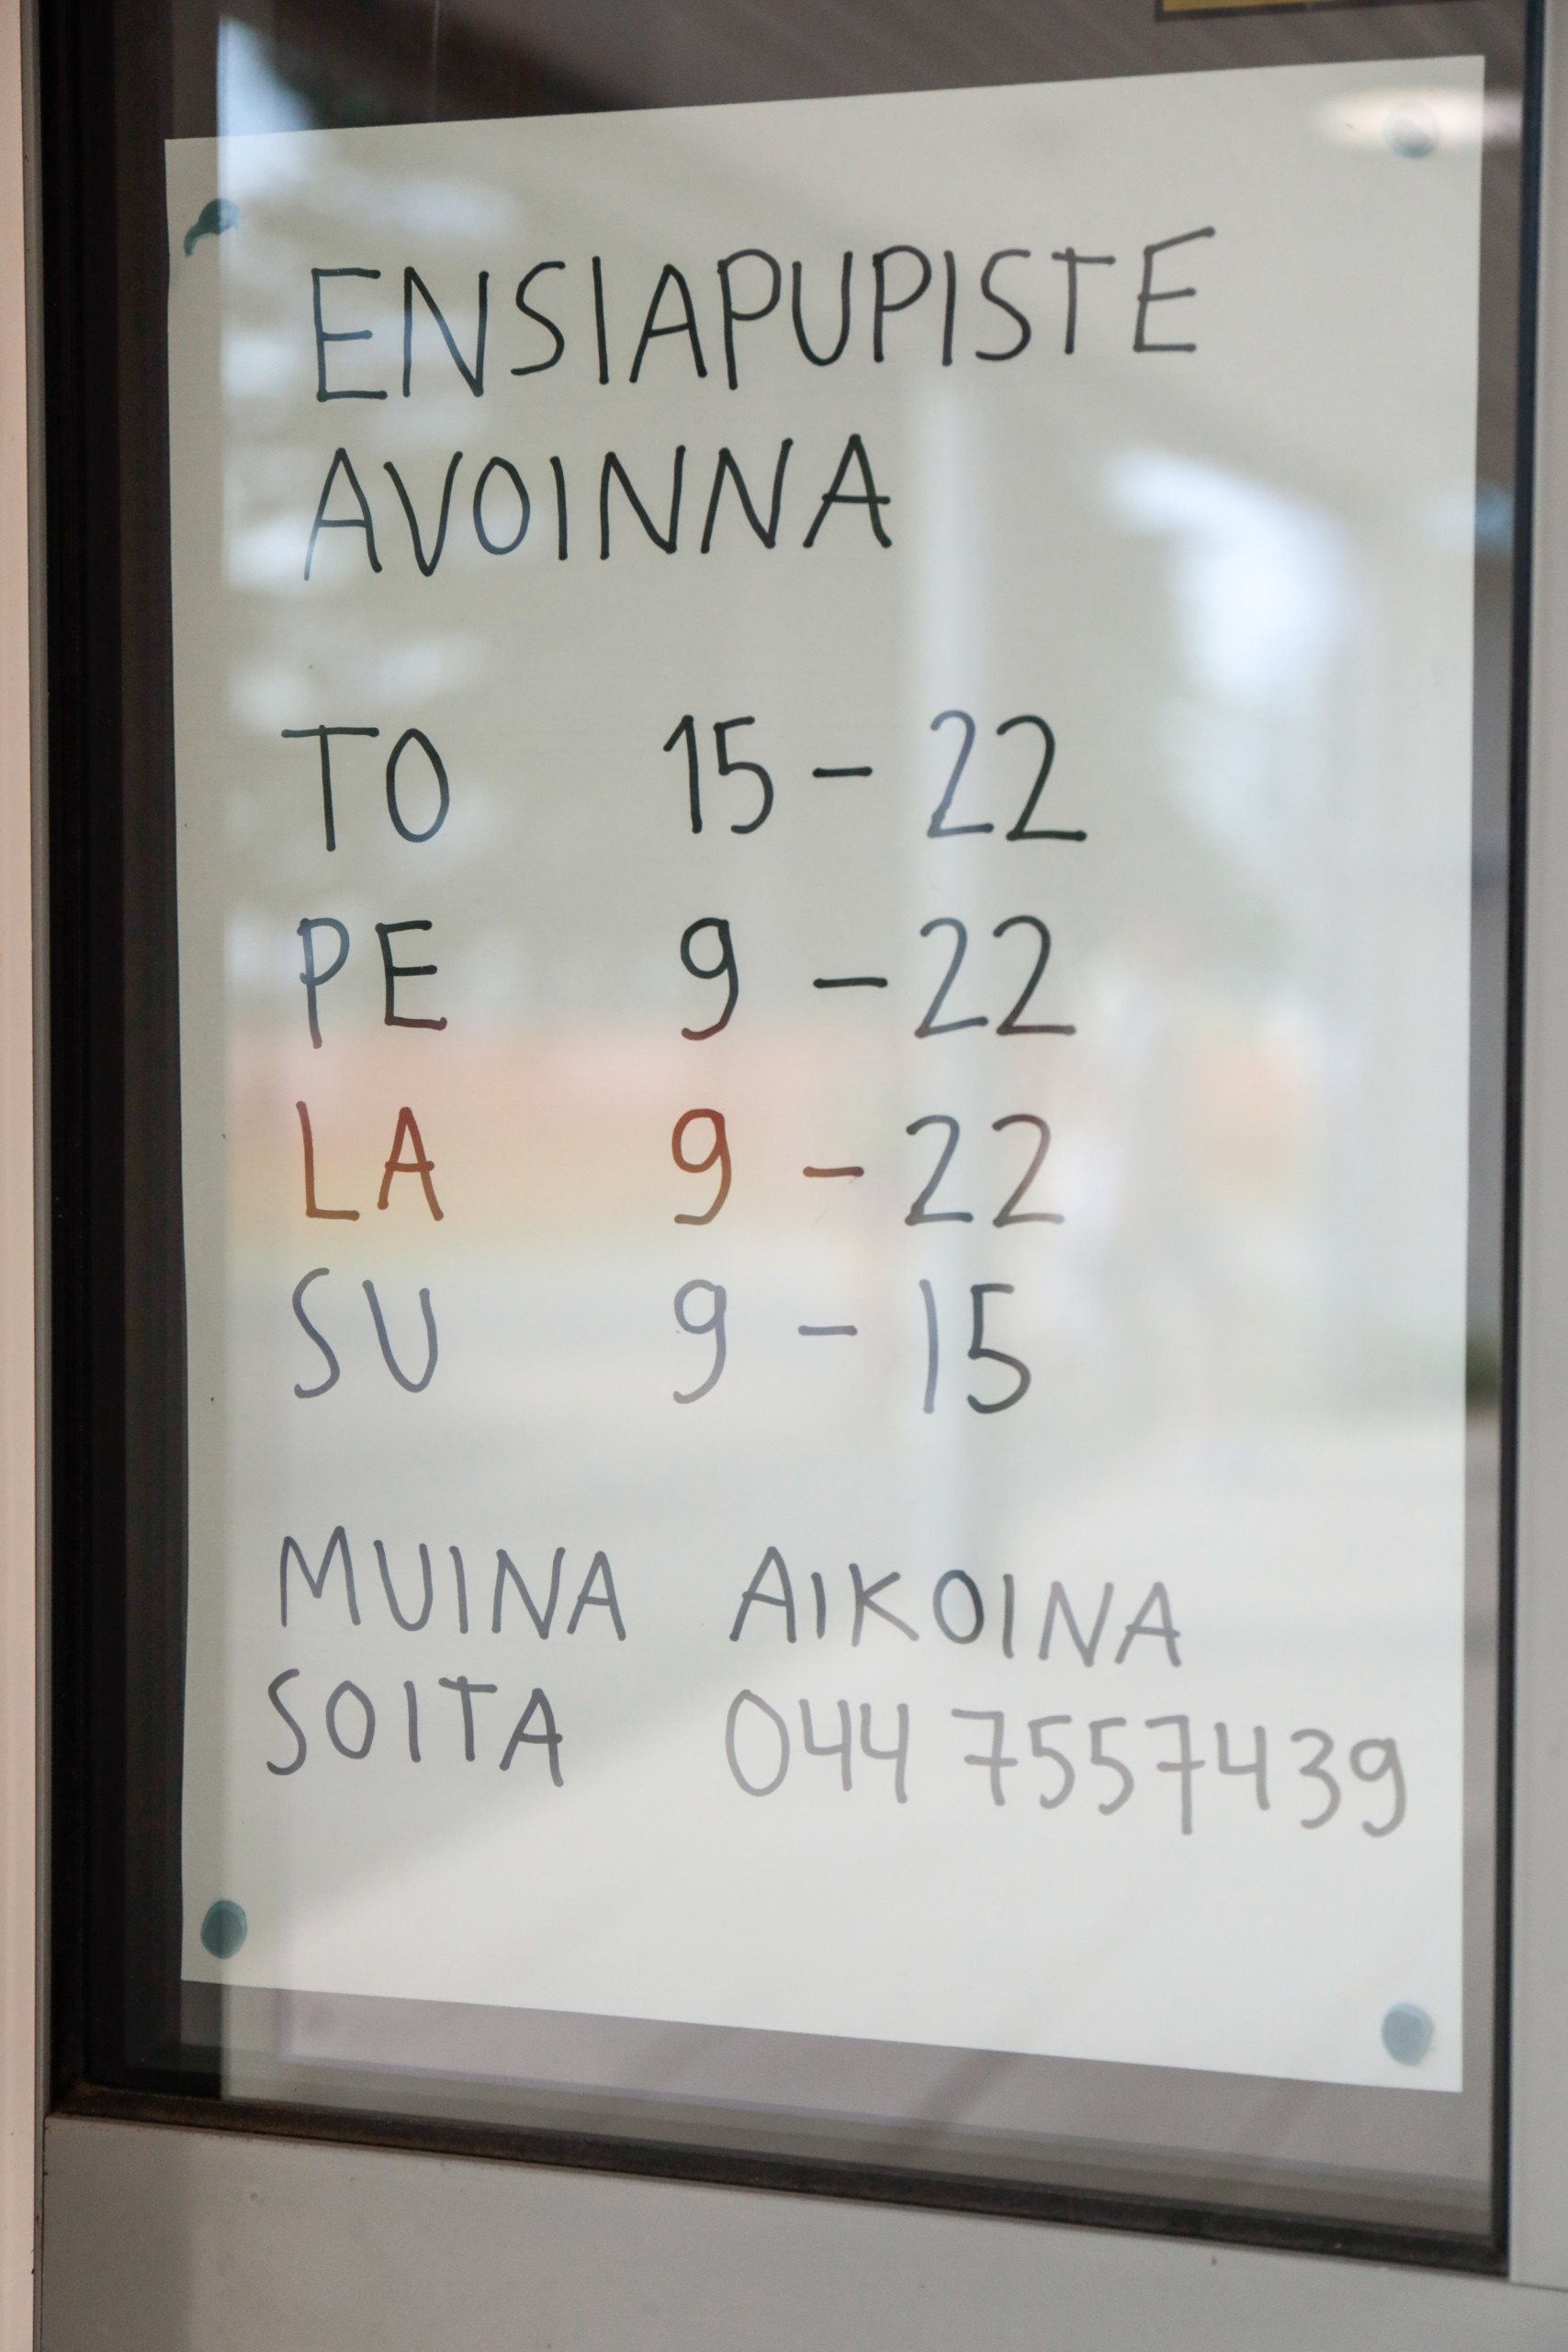 ENSIAPUPISTE
AVOINNA
TO 15 - 22
PE 9 - 22
LA 9 - 22
SU 9 - 15
MUINA AIKOINA
SOITA 044 7557439